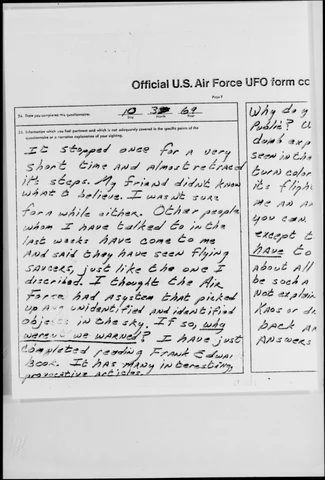 Official U.S. Air Force UFO form cc
Page 7
34. Date you completed this questionnaire:
10 3 69
Day Month Year
35. Information which you feel pertinent and which is not adequately covered in the specific points of the
questionnaire or a narrative explanation of your sighting.
It stopped once for a very
short time and almost retraced
it's steps. My friend didnt know
what to believe. I wasn't sure
for a while either. Other people
whom I have talked to in the
last weeks have come to me
and said they have seen flying
saucers, just like the one I
discribed. I thought the Air
Force had a system that picked
up ALL unidentified and identified
objects in the sky. If so, why
weren't we warned? I have just
completed reading Frank Edwar
Book. It has many interesting,
provocative articles.
Why do y
Public? U
dumb exp
seen in the
turn color
its fligh
me an an
you can.
except t
have to
about All
be such a
Not explain
Kaos or d
back A
answers